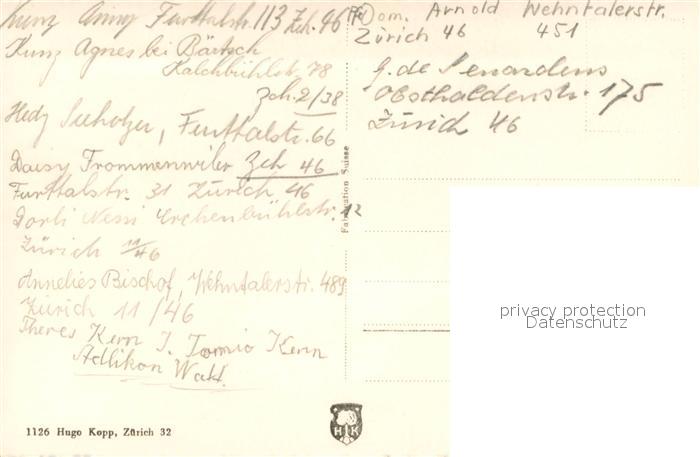 Kunz Anny Furttalstr. 113 Zch. 46
Kunz Agnes bei Bärtsch
Kalchbühlstr. 78
Zch. 2/38
Hedy Seeholzer, Furttalstr. 66
Daisy Trommenwiler Zch 46
Furttalstr. 31 Zürich 46
Dorli Nessi Lerchenbühlstr. 12
Zürich 11/46
Annelies Bischof, Wehntalerstr. 489
Zürich 11/46
Theres Kern J. Kern
Adlikon
1126 Hugo Kopp, Zürich 32
Fabrication Suisse
H K
Dom. Arnold Wehntalerstr.
Zürich 46 451
G. de Senardens
Obsthaldenstr. 175
Zürich 46
privacy protection
Datenschutz